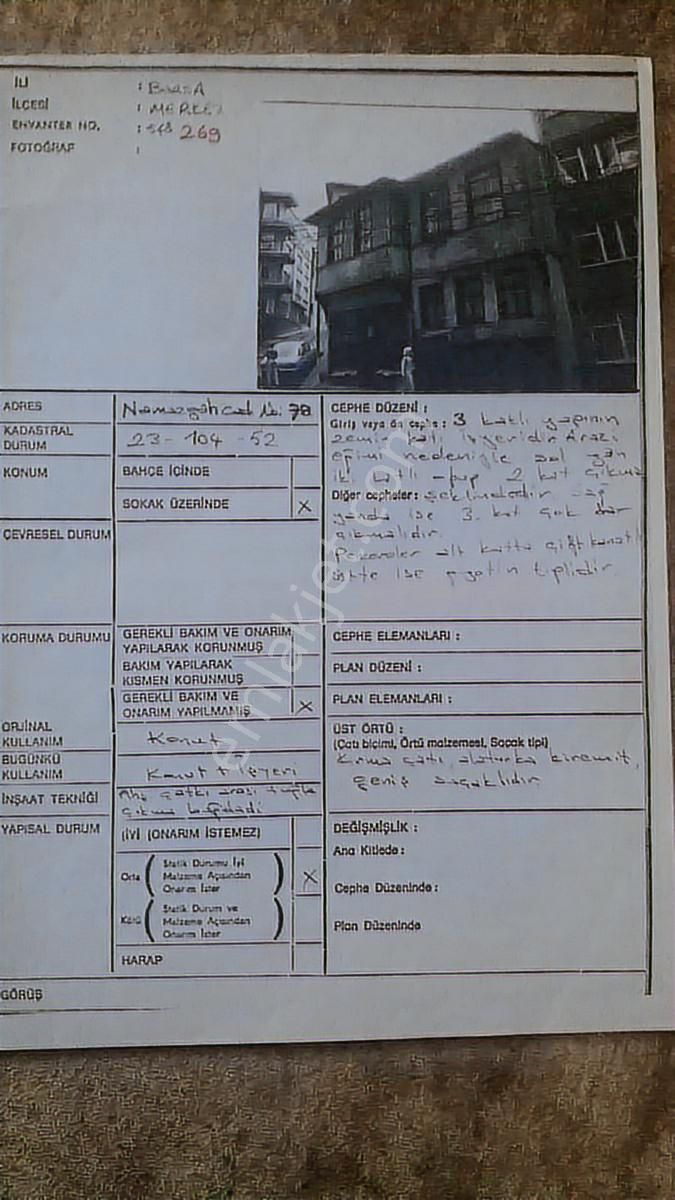 İLİ : BURSA
İLÇESİ : MERKEZ
ENVANTER NO. : 548 269
FOTOĞRAF :
ADRES Namazgâh Cad. No: 78
KADASTRAL DURUM 23-104-52
KONUM BAHÇE İÇİNDE
SOKAK ÜZERİNDE X
ÇEVRESEL DURUM
KORUMA DURUMU GEREKLİ BAKIM VE ONARIM
YAPILARAK KORUNMUŞ
BAKIM YAPILARAK
KISMEN KORUNMUŞ
GEREKLİ BAKIM VE
ONARIM YAPILMAMIŞ X
ORJİNAL
KULLANIM Konut
BUGÜNKÜ
KULLANIM Konut + İşyeri
İNŞAAT TEKNİĞİ Ahş çatkı arası tuğla
çıkma bağdadi
YAPISAL DURUM (İYİ (ONARIM İSTEMEZ)
Orta ( Statik Durumu İyi
Malzeme Açısından
Onarım İster ) X
Kötü ( Statik Durum ve
Malzeme Açısından
Onarım İster )
HARAP
GÖRÜŞ
CEPHE DÜZENİ :
Giriş veya ön cephe : 3 katlı yapının
zemin katı işyeridir. Arazi
eğimi nedeniyle sol yan
iki katlı 2. kat çıkma
Diğer cepheler : şeklindedir. Sağ
yanda ise 3. kat çok dar
çıkmalıdır.
Pencereler alt katta çift kanatlı
üstte ise giyotin tiplidir.
CEPHE ELEMANLARI :
PLAN DÜZENİ :
PLAN ELEMANLARI :
ÜST ÖRTÜ :
(Çatı biçimi, Örtü malzemesi, Saçak tipi)
Kırma çatı, alaturka kiremit,
geniş saçaklıdır.
DEĞİŞMİŞLİK :
Ana Kitlede :
Cephe Düzeninde :
Plan Düzeninde
emlakjet.com